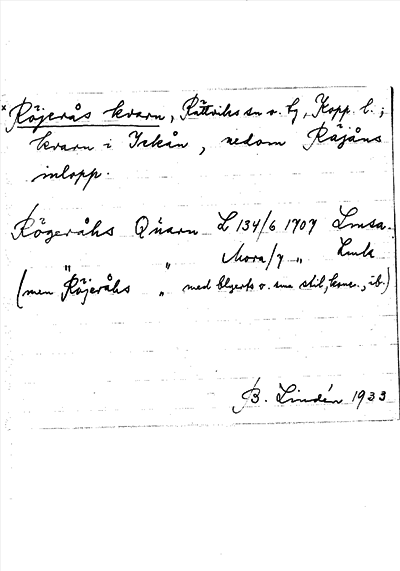 × Röjerås kvarn, Rättviks sn o. hg, Kopp. l.;
kvarn i Ickån, nedom Räjåns
inlopp.
Rögeråhs Quarn L 134/6 1707 Lmsa.
" " Mora/7 " Lmk
(men Röjeråhs " med o. sme stil, konc., ib.)
B. Lindén 1933